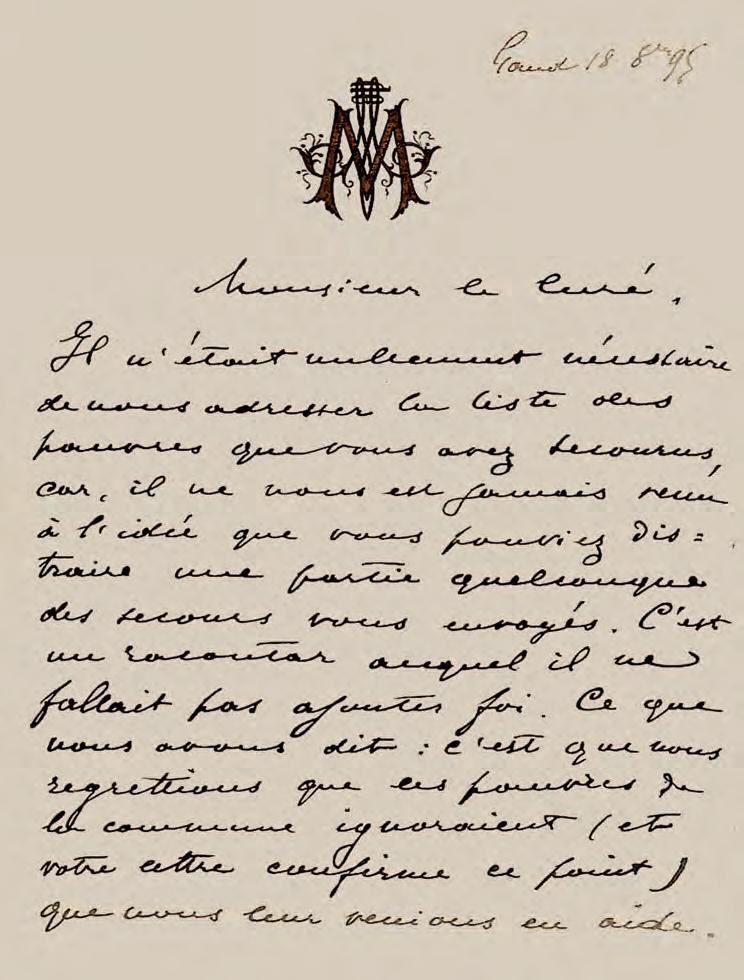 Gand 18 8bre 95
Monsieur le Curé,
Il n'était nullement nécessaire
de nous adresser la liste des
pauvres que vous avez secourus,
car, il ne nous est jamais venu
à l'idée que vous pouviez dis=
traire une partie quelconque
des secours vous envoyés. C'est
un racontar auquel il ne
fallait pas ajouter foi. Ce que
nous avons dit : c'est que nous
regrettions que les pauvres de
la commune ignoraient (et
votre lettre confirme ce point)
que nous leur venions en aide.